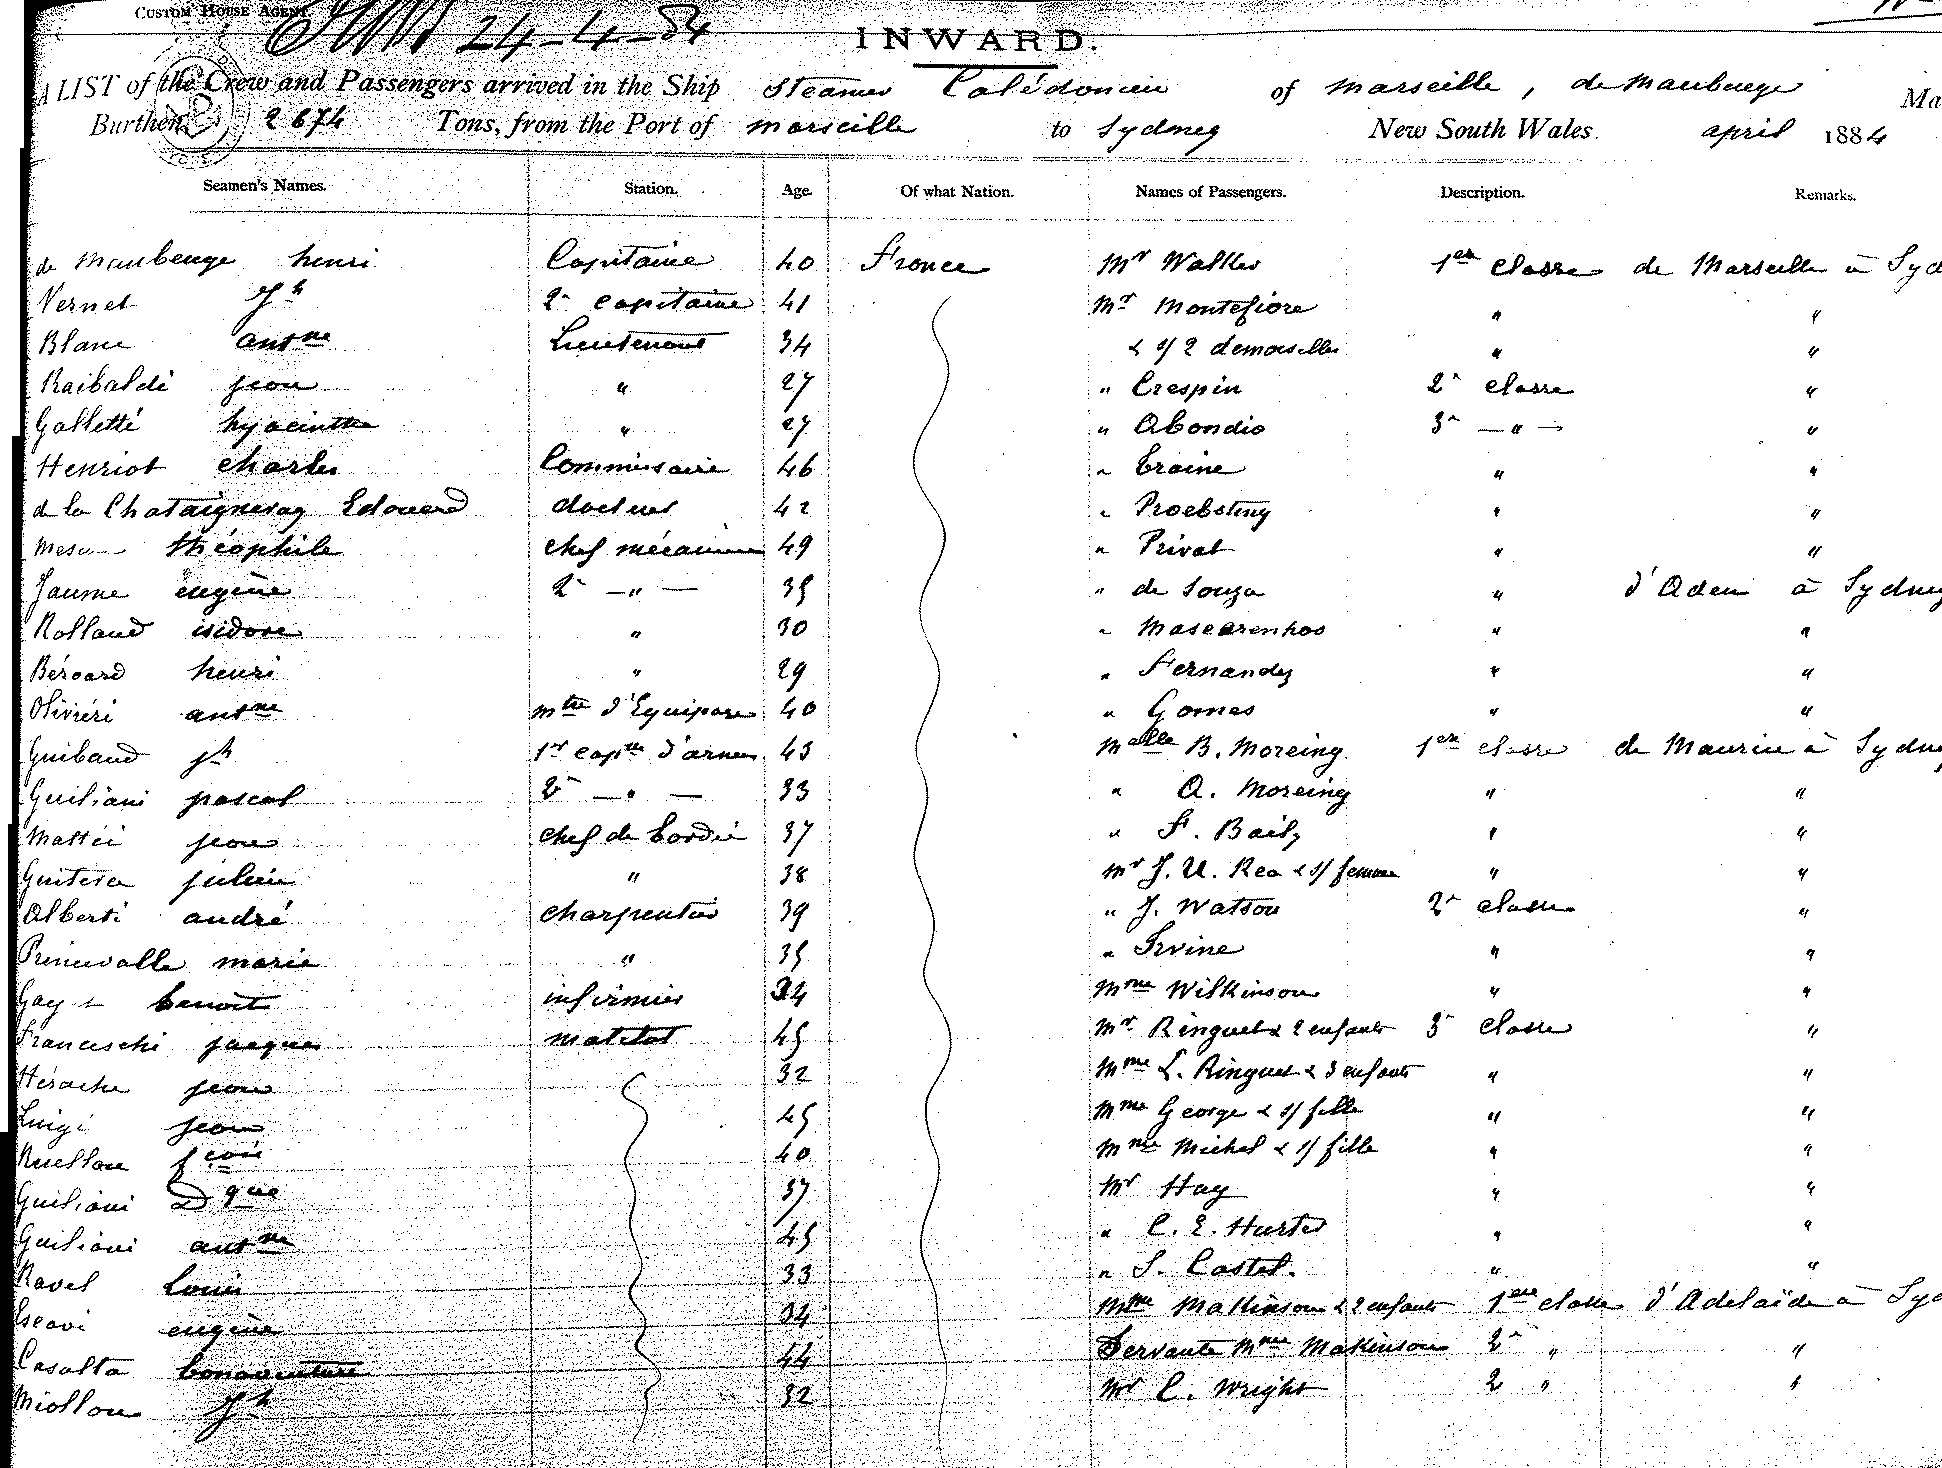 CUSTOM HOUSE AGENT
24-4-84
INWARD.
A LIST of the Crew and Passengers arrived in the Ship Steamer Calédonien of Marseille, de Maubeuge Ma
Burthen 2674 Tons, from the Port of Marseille to Sydney New South Wales. april 1884
Seamen's Names. Station. Age. Of what Nation. Names of Passengers. Description. Remarks.
de Maubeuge henri Capitaine 40 France Mr Walker 1ere classe de Marseille à Syd
Vernet Jh 2e capitaine 41 Mr Montefiore " "
Blanc antne Lieutenant 34 & s/ 2 demoiselles " "
Raibaldi jean " 27 " Crespin 2e classe "
Galletté hyacinthe " 27 " Abondio 3e — " — "
Henriot charles Commissaire 46 " Traine " "
de la Chataigneray Edouard docteur 42 " Proebsting " "
théophile chef mécanicien 49 " Privat " "
Jaume eugène 2e — " — 35 " de Souza " d'Aden à Sydney
Rolland isidore " 30 " Mascarenhas " "
Bérard henri " 29 " Fernandez " "
Oliviéri antne mtre d'Equipage 40 " Gomes " "
Guibaud jh 1er capne d'armes 43 Melle B. Moreing 1ere classe de Maurice à Sydney
Guiliani pascal 2e — " — 33 " A. Moreing " "
Mattéi jean chef de bordée 37 " F. Baily " "
Guitera julien " 38 Mr J. U. Rea & s/ femme " "
Alberti andré charpentier 39 " J. Watson 2e classe "
Princivalle marie " 35 " Irvine " "
benoit infirmier 34 Mme Wilkinson " "
Franceschi jacques matelot 45 Mr Ringuet & 2 enfants 3e classe "
Hérache jean 32 Mme L. Ringuet & 3 enfants " "
Luigi jean 45 Mme George & s/ fille " "
Ruellan fcois 40 Mme Michel & s/ fille " "
Guiliani Dque 37 Mr Hay " "
Guiliani antne 45 " C. E. Hurter " "
Ravel Louis 33 " S. Castel. " "
eugène 34 Mme Makinson & 2 enfants 1ere classe d'Adelaïde à Syd
Casalta bonaventure 44 Servante Mme Makinson 2e " "
Miollon Jh 32 Mr C. Wright 2 " "